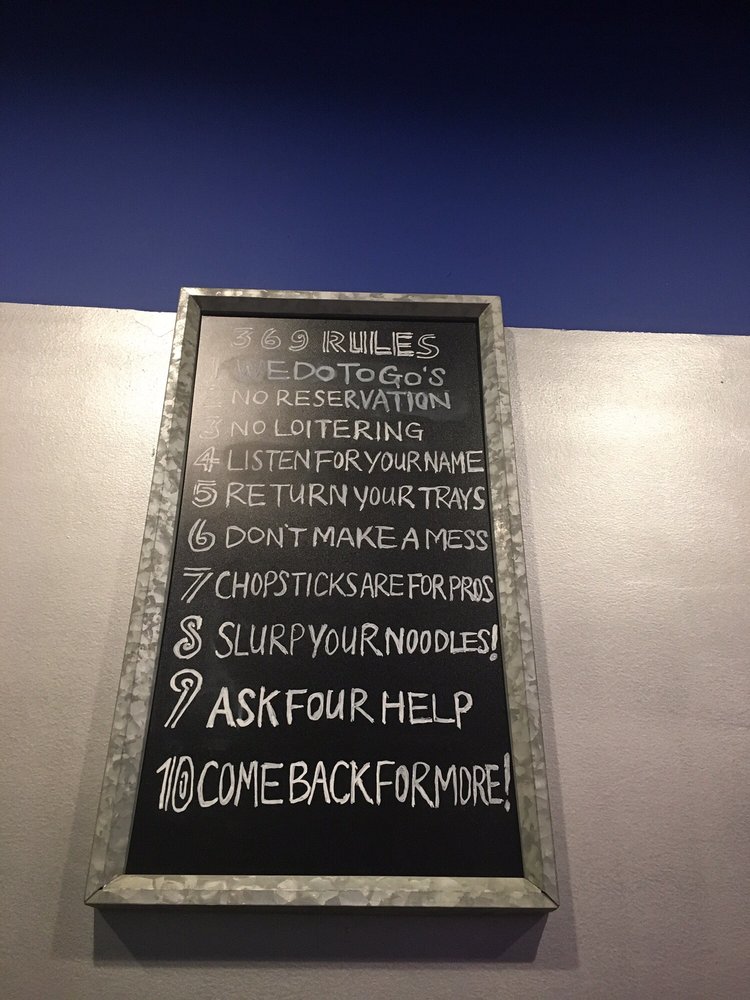 369 RULES
1 WE DO TO GO'S
2 NO RESERVATION
3 NO LOITERING
4 LISTEN FOR YOUR NAME
5 RETURN YOUR TRAYS
6 DON'T MAKE A MESS
7 CHOPSTICKS ARE FOR PROS
8 SLURP YOUR NOODLES!
9 ASK FOUR HELP
10 COME BACK FOR MORE!